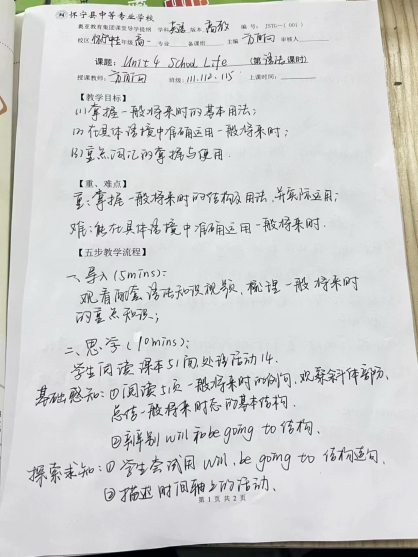 怀宁县中等专业学校
奥亚教育集团课堂导学提纲 学科 英语 版本 高教 编号: JXTG-(001)
校区 怀宁中专 年级 高一 专业 备课组 主编 方雨问 审核人
课题: Unit 4 School Life (第 语法 课时)
授课教师: 方雨问 班级: 111.112.115 上课时间:
【教学目标】
(1)掌握一般将来时的基本用法;
(2)在具体语境中准确运用一般将来时;
(3)重点词汇的掌握与使用.
【重、难点】
重:掌握一般将来时的结构及用法,并实际运用;
难:能在具体语境中准确运用一般将来时.
【五步教学流程】
一、导入(5mins):
观看配套语法知识视频、梳理一般将来时
的重点知识;
二、思学(10mins):
学生阅读课本51页处语法活动14.
基础感知:①阅读51页一般将来时的例句,观察斜体部分、
总结一般将来时态的基本结构.
②辨别will和be going to结构、
探索求知:①学生尝试用will, be going to结构造句.
②描述时间轴上的活动、
第 1 页 共 2 页